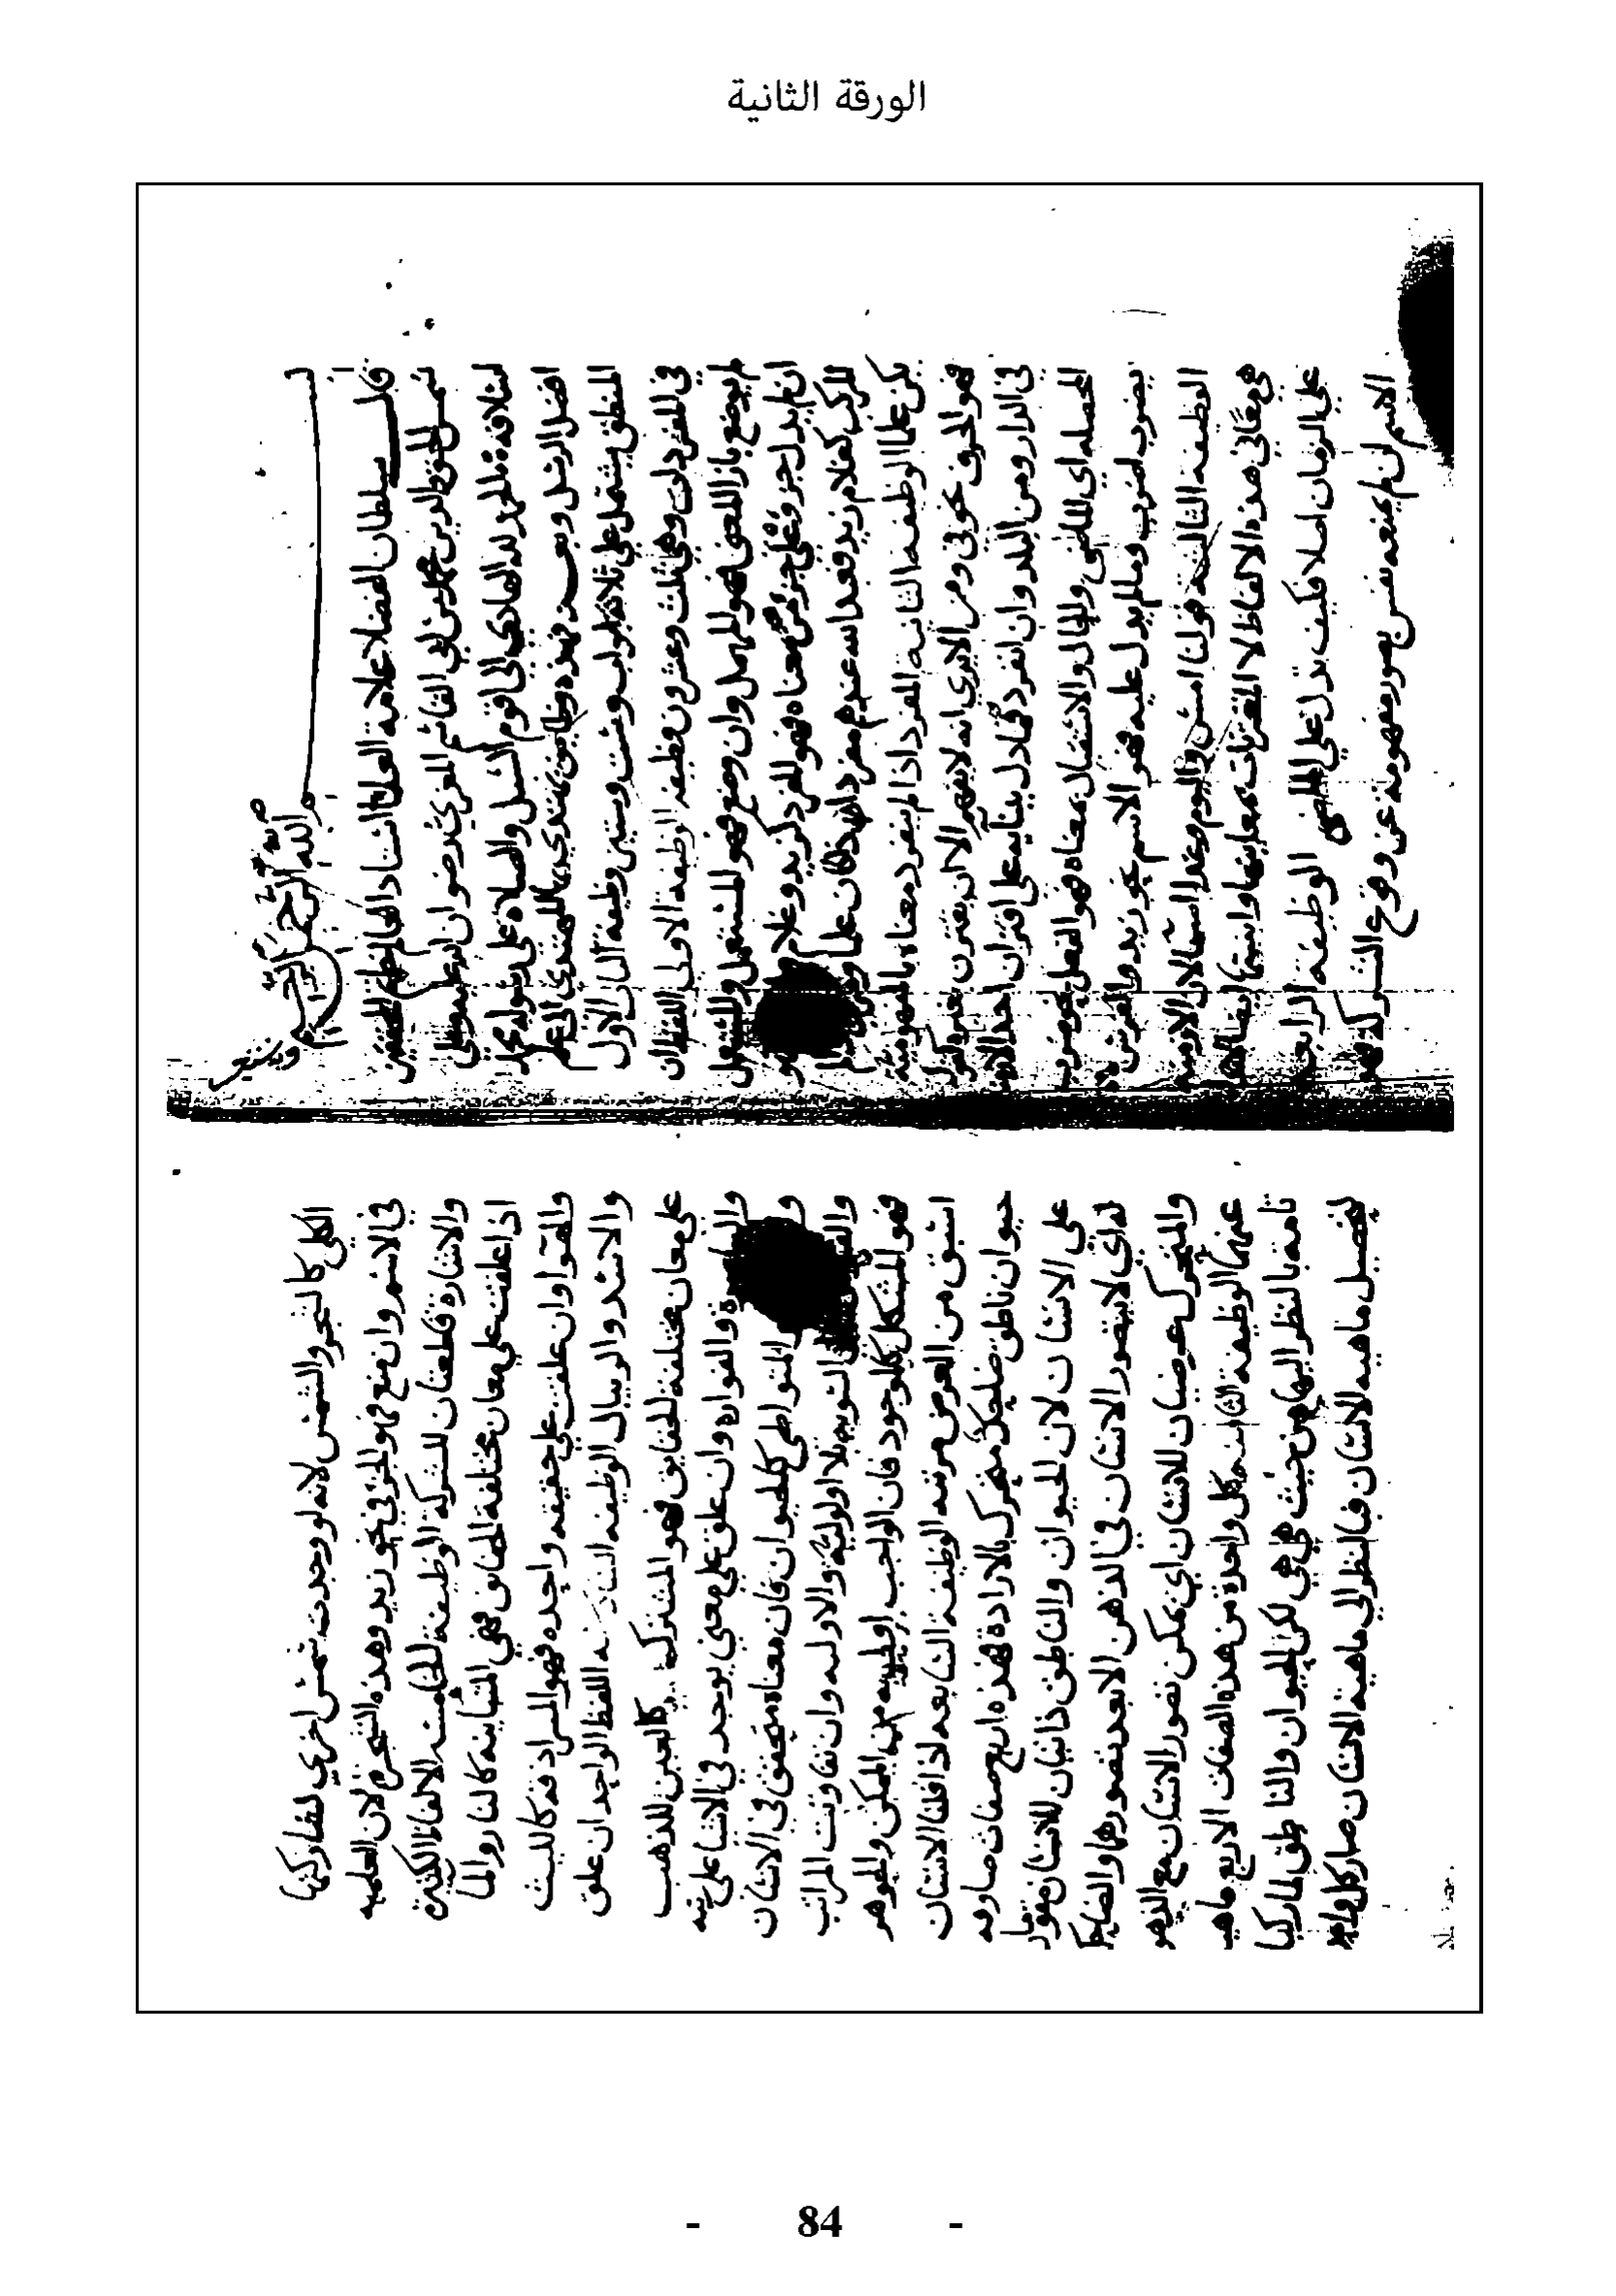 الورقة الثانية
بسم الله الرحمن الرحيم
قال سلطان الفضلا علامة العلما
شمس الحق والدين محمد بن ابي القاسم رضوان الله عليه
والصلاة على رسوله محمد
افضل الرسل وبعد فهذه
المنطق يشتمل على ثلاثة ابواب وست وستين وظيفة الباب الاول
في المفردات وهي ثلث وعشرون وظيفة الوظيفة الاولى اللفظ ان
لم يوضع بازا المعنى فهو المهمل وان وضع فهو المستعمل والمستعمل
ان لم يدل جزؤه على جزء من معناه فهو المفرد كزيد وغلام
المركب كغلام زيد
الوظيفة الثانية المفرد اذا لم ينفرد معناه بالمفهومية
فهو الحرف نحو في ومن الا يرى انه لا يفهم الا ان يقترن بغيره كقولك
في الدار ومن البلد وان انفرد فما دل ببنايه على اقتران احد الازمنة
المحصلة اي الماضي والحال والاستقبال بمعناه فهو الفعل نحو ضرب
يضرب اضرب وما لم يدل عليه فهو الاسم نحو زيد والفرس
الوظيفة الثالثة قولنا امس واليوم وغدا اسما لان الازمنة
هي معاني هذه الالفاظ لا المقترنات بمعانيها وايضا
على الزمان اصلا فكيف تدل على الماضي الوظيفة الرابعة
الاسم ان لم يمنعه نفس تصور مفهومه عن وقوع الشركة فهو
الكلي كالشجر والشمس لانه لو وجدت شمس اخري لشاركتها
في الاسم وان منع فهو الجزئي نحو زيد وهذه الشجرة لان العلمية
والاشارة قطعتان للشركة الوظيفة الخامسة الالفاظ الكثيرة
اذا علقت علي معان مختلفة الحقايق فهي المتباينة كالنار والما
والهوا وان علقت علي حقيقة واحدة فهو المترادفة كالليث
والاسد والريبال الوظيفة السادسة اللفظ الواحد ان علق
على معان مختلفة الحقايق فهو المشترك كالعين للذهب
والفوارة وان علق علي معني يوجد في الاشيا علي
المتواطي كالحيوان فان معناه متحقق في الانسان
السوية بلا اولوية والاولية وان تفاوتت المراتب
فهو المشكل كالوجود فان الواجب اولي به من الممكن والجوهر
اسبق من العرض مرتبة الوظيفة السابعة اذا قلنا الانسان
حيوان ناطق ضاحك متحرك بالارادة فهذه اربع صفات صادقة
علي الانسان لان الحيوان والناطق ذاتيان للانسان
له اي لا يتصور الانسان في الذهن الا بعد تصورهما والضاحك
والمتحرك عرضيان للانسان اي يمكن تصور الانسان مع الذهول
عنهما الوظيفة الثامنة كل واحدة من هذه الصفات الاربع
تامة بالنظر اليها من حيث هي هي لكن الحيوان والناطق لما ركبا
لتحصيل ماهية الانسان فبالنظر الي ماهية الانسان صار كل واحد
- 84 -